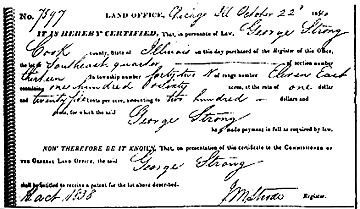 No. 7597 LAND OFFICE, Chicago Ill October 22d 1840
IT IS HEREBY CERTIFIED, That, in pursuance of Law, George Strong
Cook county, State of Illinois on this day purchased of the Register of this Office,
the lot or Southeast quarter of section number
thirteen in township number forty two N of range number Eleven East
containing one hundred & sixty acres, at the rate of one dollar
and twenty five cents per acre, amounting to two hundred dollars and
cents, for which the said George Strong
has made payment in full as required by law.
NOW THEREFORE BE IT KNOWN, That, on presentation of this certificate to the COMMISSIONER OF
THE GENERAL LAND OFFICE, the said George Strong
shall be entitled to receive a patent for the lot above described.
act 1838 Register.